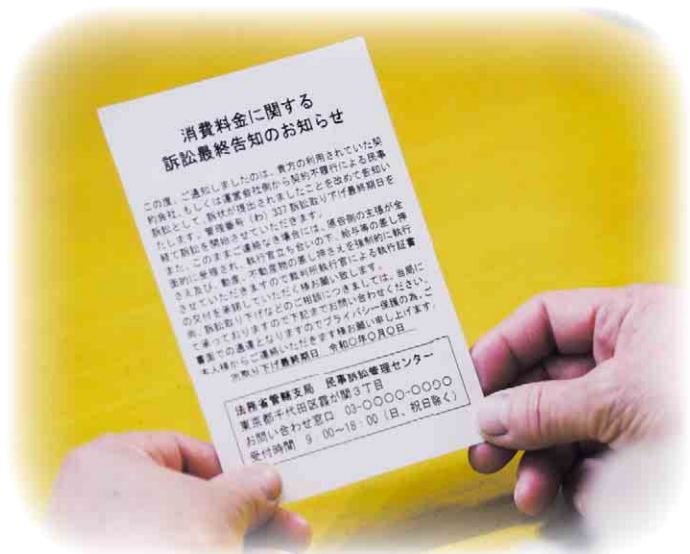 消費料金に関する
訴訟最終告知のお知らせ
この度、ご通知しましたのは、貴方の利用されていた契
約会社、もしくは運営会社側から契約不履行による民事
訴訟として、訴状が提出されましたことを改めて告知い
たします。管理番号（わ）337 訴訟取り下げ最終期日を
経て訴訟を開始させていただきます。
また、このままご連絡なき場合には、原告側の主張が全
面的に受理され、執行官立ち合いの下、給与等の差し押
さえ及び、動産、不動産物の差し押さえを強制的に執行
させていただきますので裁判所執行官による執行証書
の交付を承諾していただく様お願い致します。
尚、訴訟取り下げなどのご相談につきましては、当局に
て承っておりますので下記までお問い合わせください。
書面での通達となりますのでプライバシー保護の為、ご
本人様からご連絡いただきます様お願い申し上げます。
取り下げ最終期日 令和〇年〇月〇日
法務省管轄支局 民事訴訟管理センター
東京都千代田区霞が関3丁目
お問い合わせ窓口 03-〇〇〇〇-〇〇〇〇
受付時間 9：00～18：00（日、祝日除く）